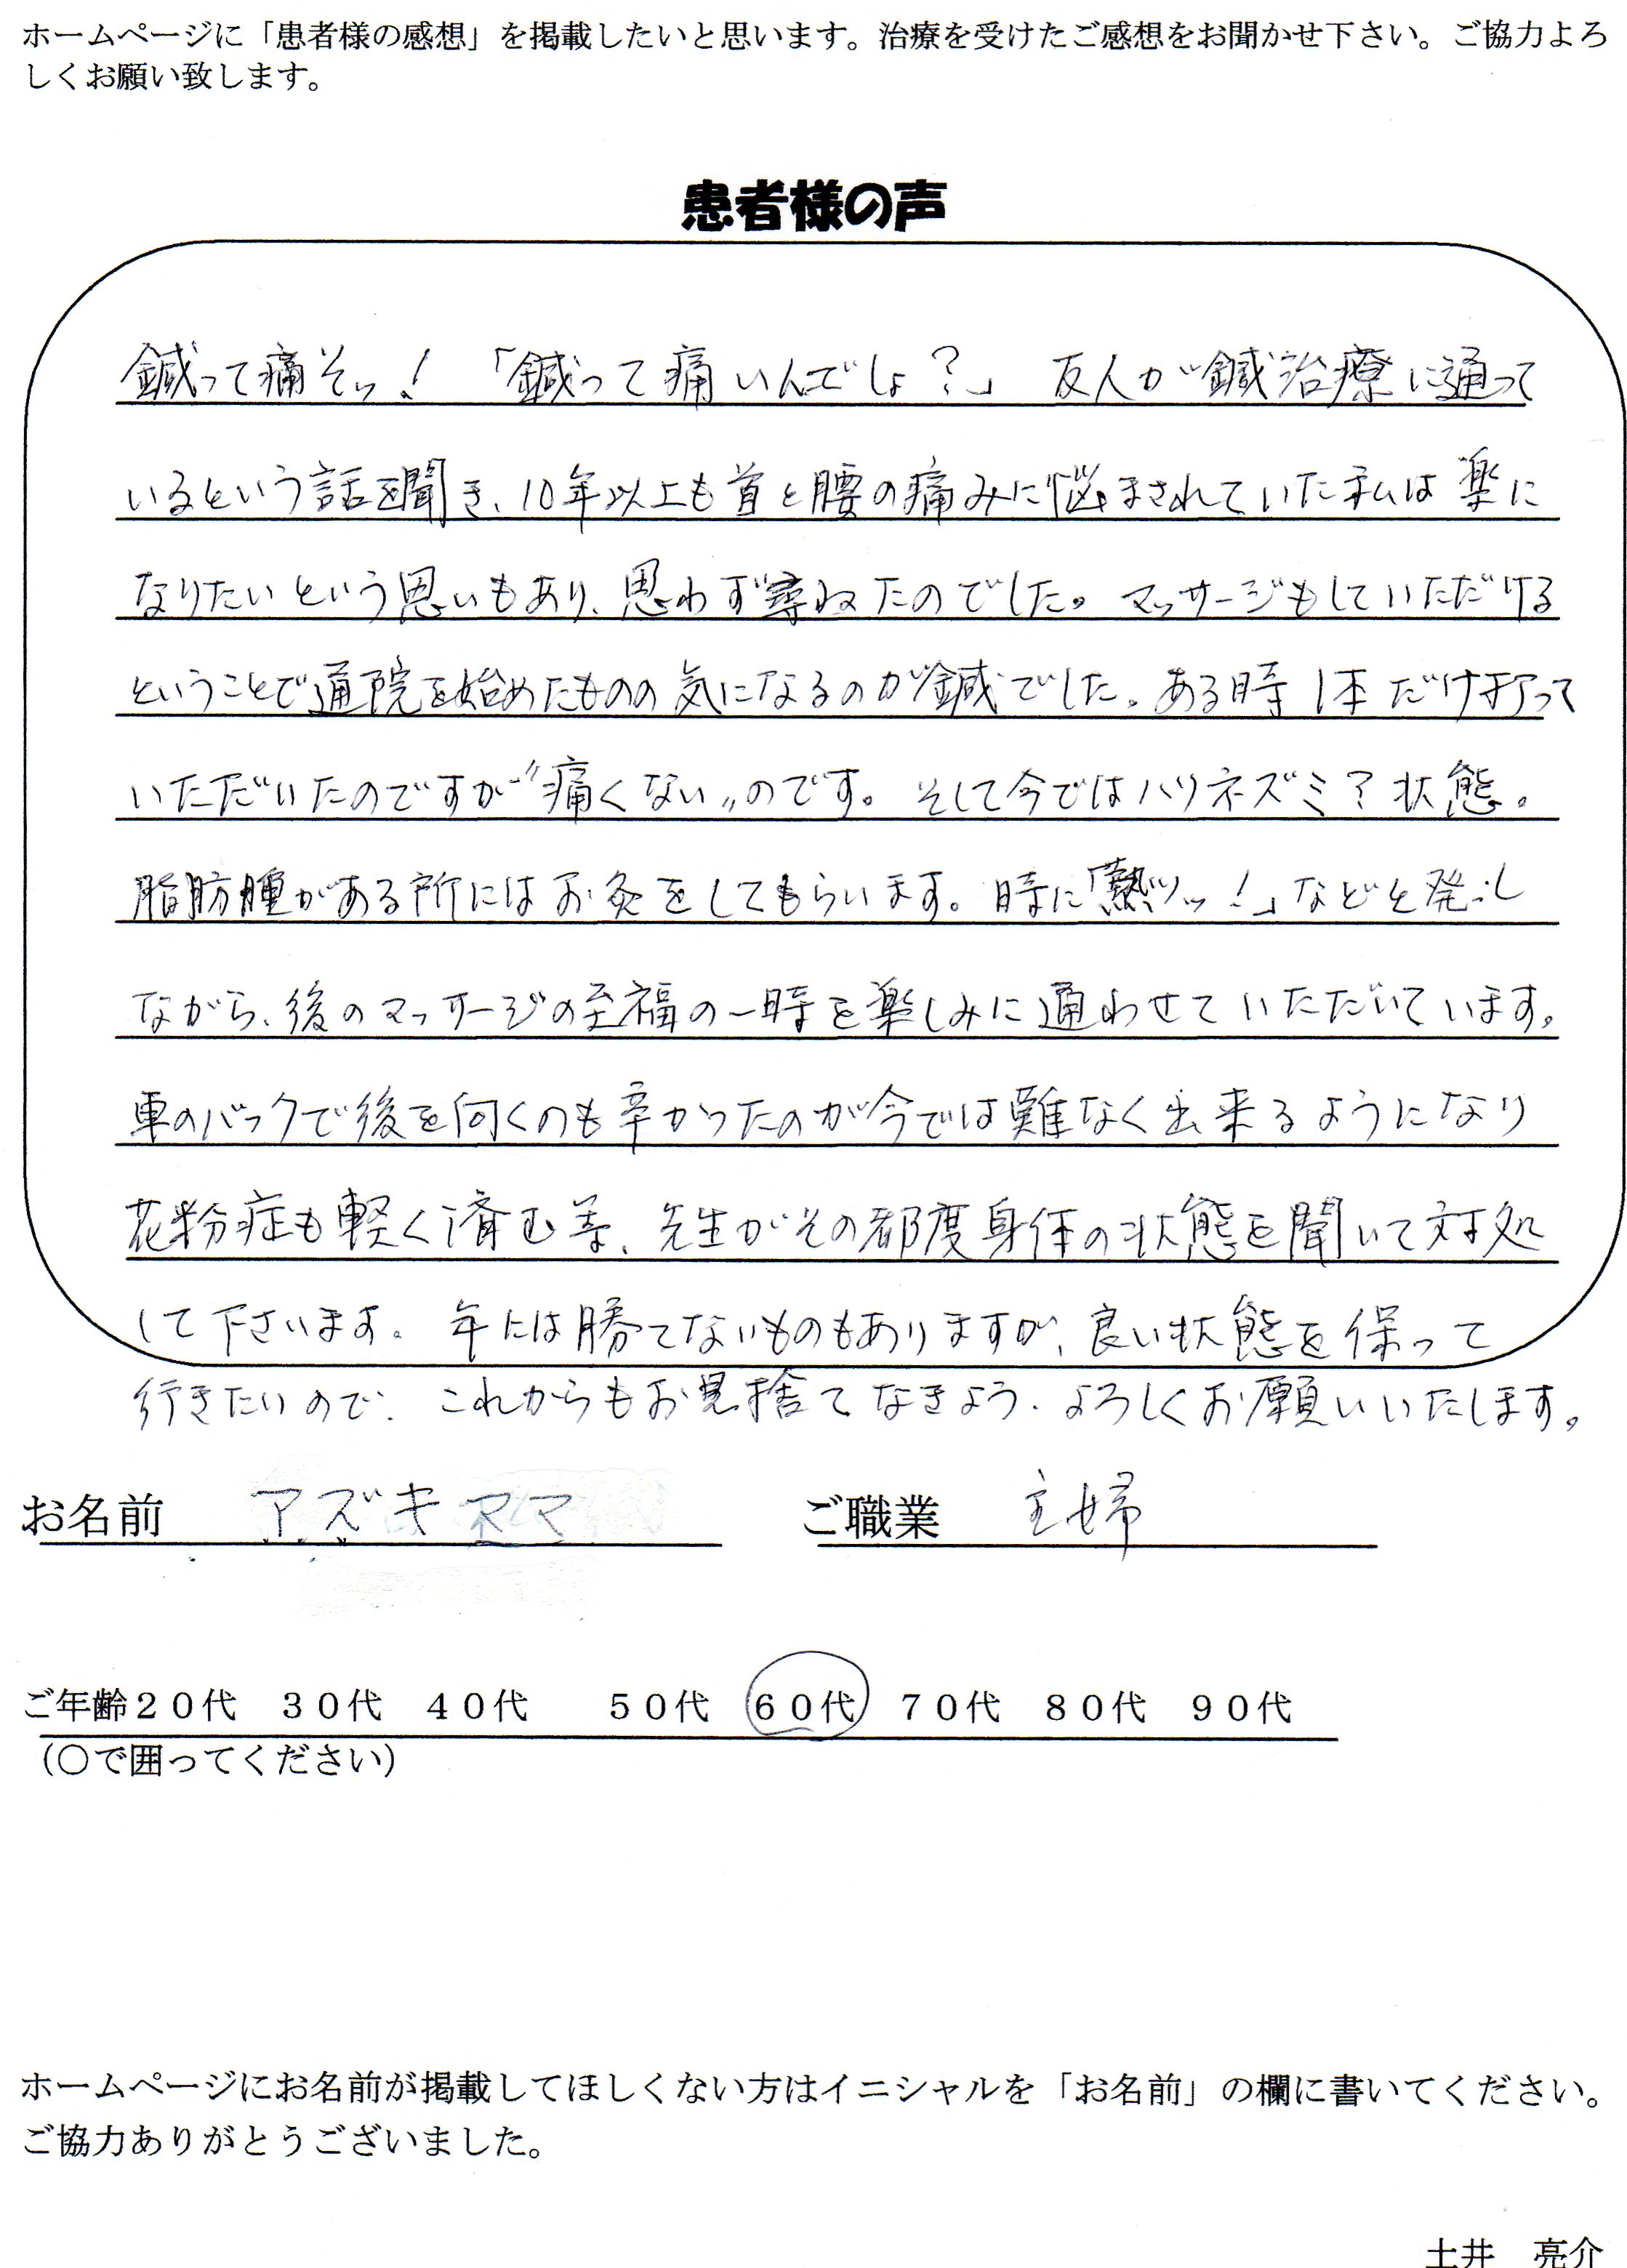 ホームページに「患者様の感想」を掲載したいと思います。治療を受けたご感想をお聞かせ下さい。ご協力よろ
しくお願い致します。
患者様の声
鍼って痛そッ！ 「鍼って痛いんでしょ？」 友人が鍼治療に通って
いるという話を聞き、10年以上も首と腰の痛みに悩まされていた私は楽に
なりたいという思いもあり、思わず尋ねたのでした。マッサージもしていただける
ということで通院を始めたものの気になるのが鍼でした。ある時1本だけ打って
いただいたのですが〝痛くない〟のです。そして今ではハリネズミ？状態。
脂肪腫がある所にはお灸をしてもらいます。時に「熱ツッ！」などと発し
ながら、後のマッサージの至福の一時を楽しみに通わせていただいています。
車のバックで後を向くのも辛かったのが今では難なく出来るようになり
花粉症も軽く済む等、先生がその都度身体の状態を聞いて対処
して下さいます。年には勝てないものもありますが、良い状態を保って
行きたいので、これからもお見捨てなきよう、よろしくお願いいたします。
お名前 アズキママ ご職業 主婦
ご年齢２０代 ３０代 ４０代 ５０代 ６０代 ７０代 ８０代 ９０代
（○で囲ってください）
ホームページにお名前が掲載してほしくない方はイニシャルを「お名前」の欄に書いてください。
ご協力ありがとうございました。
土井 亮介